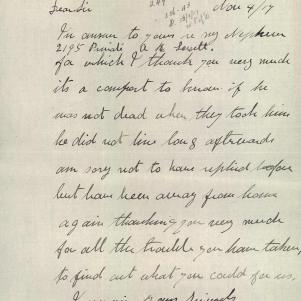 Dear Sir Nov 4/17
In answer to yours re my Nephew
2195 Private A
for which I thank you very much
its a comfort to know if he
was not dead when they took him
he did not live long afterwards
am sorry not to have replied before
but have been away from home
again thanking you very much
for all the trouble you have taken,
to find out what you could for us,
I remain Yours Sincerely